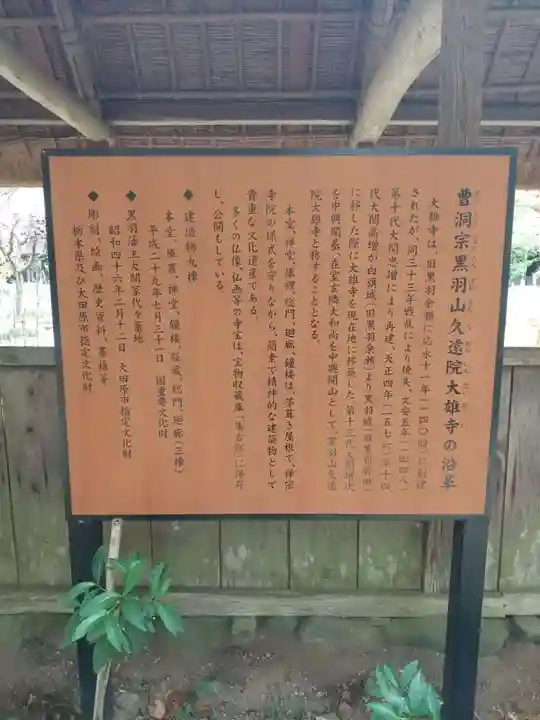 曹洞宗黒羽山久遠院大雄寺の沿革
大雄寺は、旧黒羽余瀬に応永十一年(一四〇四)に創建
されたが、同三十三年戦乱により焼失、文安五年(一四四八)
第十代大関忠増により再建、天正四年(一五七六)第十四
代大関高増が白旗城(旧黒羽余瀬)より黒羽城(旧黒羽前田)
に移した際に大雄寺を現在地に移築した。第十三代大関増次
を中興開基、在室玄隣大和尚を中興開山として、黒羽山久遠
院大雄寺と称することとなる。
本堂、禅堂、庫裡、総門、廻廊、鐘楼は、茅葺き屋根で、禅宗
寺院の様式を守りながら、簡素で精神的な建築物として
貴重な文化遺産である。
多くの仏像、仏画等の寺宝は、宝物収蔵庫「集古館」に保存
し、公開もしている。
◆ 建造物九棟
本堂、庫裏、禅堂、鐘楼、経蔵、総門、廻廊(三棟)
平成二十九年七月三十一日 国重要文化財
◆ 黒羽藩主大関家代々墓地
昭和四十六年二月十二日 大田原市指定文化財
◆ 彫刻、絵画、歴史資料、墓碑等
栃木県及び大田原市指定文化財